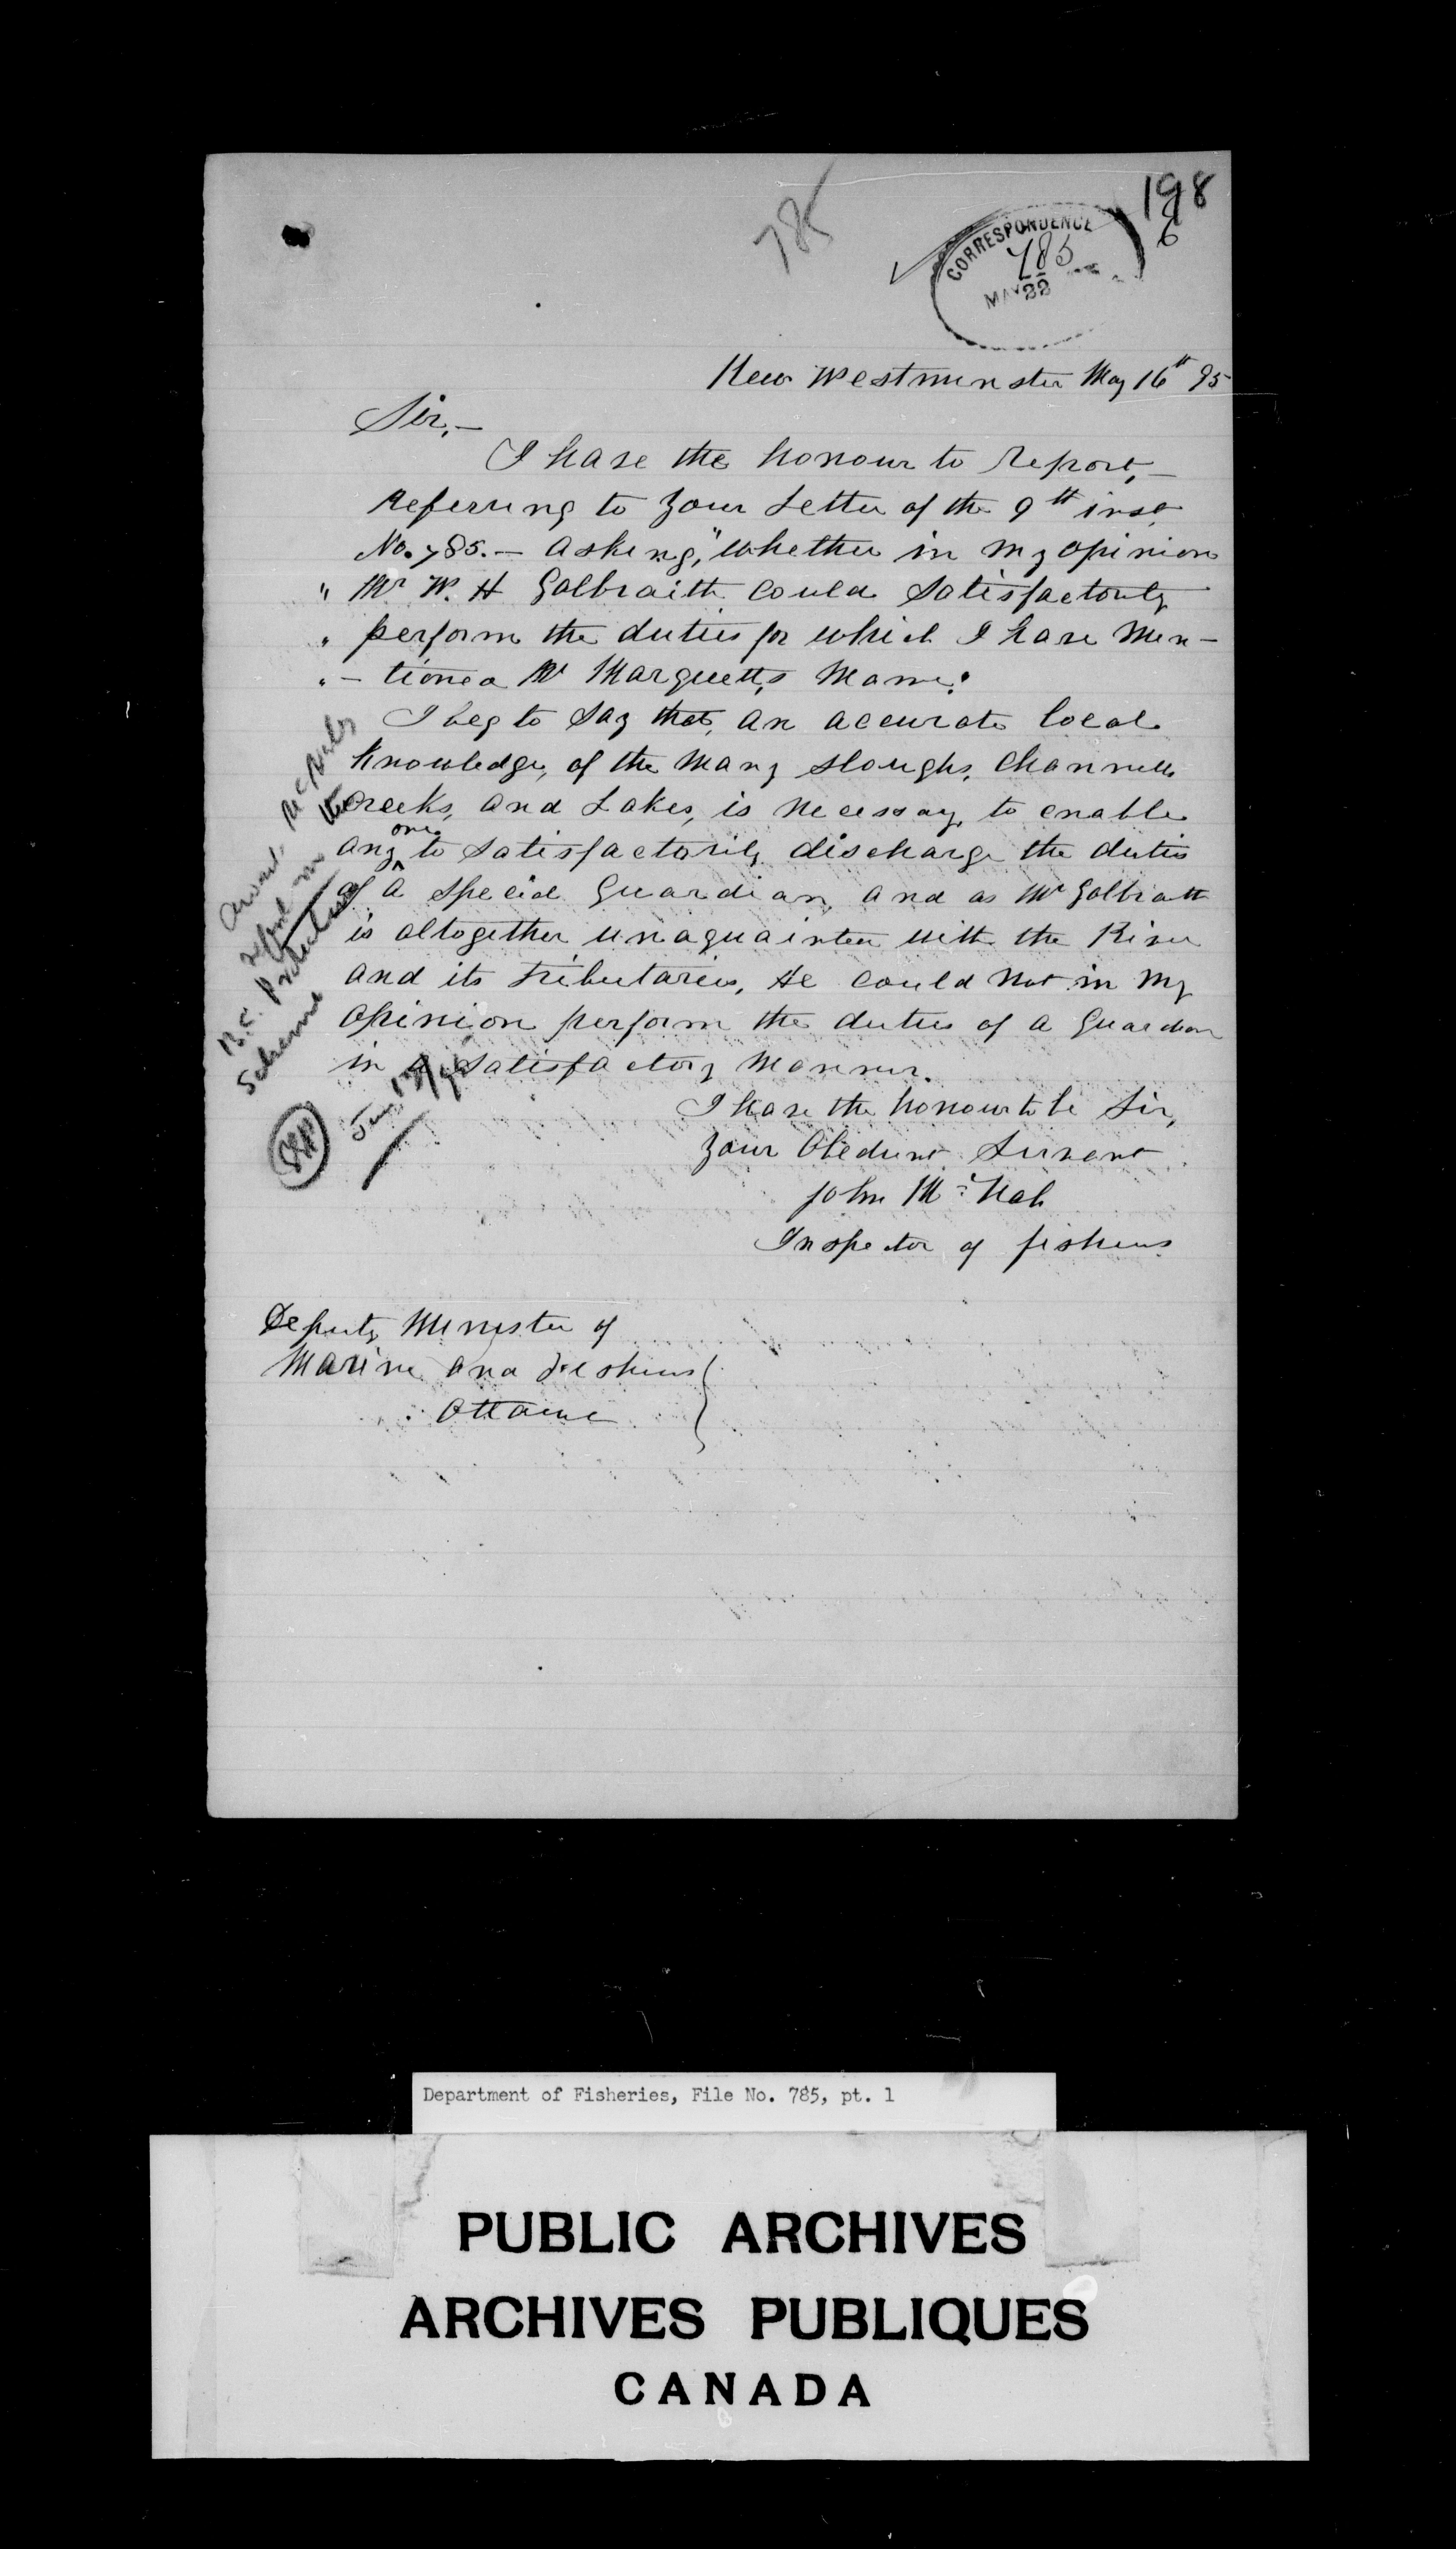 198
6
785
CORRESPONDENCE
785
MAY 22
New Westminster May 16th 95
Sir,—
I have the honour to Report,—
Referring to your Letter of the 9th inst,
No. 785.— Asking, "Whether in my opinion
" Mr W. H Galbraith could satisfactorily
" perform the duties for which I have Men-
" - tioned Mr Marquetts Name."
I beg to say that, an accurate local
knowledge, of the Many sloughs, Channells
Creeks, and Lakes, is necessary, to enable
any one to satisfactorily discharge the duties
of a special Guardian, and as Mr Galbraith
is altogether unaquainted with the River
and its tributaries, He could not in my
opinion perform the duties of a Guardian
in a satisfactory Manner.
I have the honour to be Sir,
your Obedient Servant
John McNab
Inspector of fisheries
Deputy Minister of
Marine and Fisheries
Ottawa
Await
report on the
B.C. Protective
Scheme
Department of Fisheries, File No. 785, pt. 1
PUBLIC ARCHIVES
ARCHIVES PUBLIQUES
CANADA